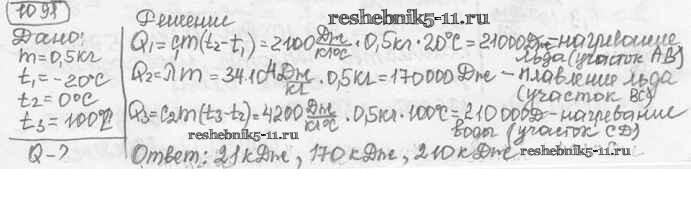 1098
Решение
reshebnik5-11.ru
Дано:
m=0,5кг
t₁=-20°C
t₂=0°C
t₃=100°C
Q-?
Q₁=c₁m(t₂-t₁)=2100 Дж/кг°C · 0,5кг · 20°C=21000Дж-нагревание
льда (участок AB)
Q₂=λm=34·10⁴ Дж/кг · 0,5кг=170000Дж-плавление льда
(участок BC)
Q₃=c₂m(t₃-t₂)=4200 Дж/кг°C · 0,5кг · 100°C=210000Д-нагревание
воды (участок CD)
reshebnik5-11.ru
Ответ: 21кДж, 170кДж, 210кДж
reshebnik5-11.ru